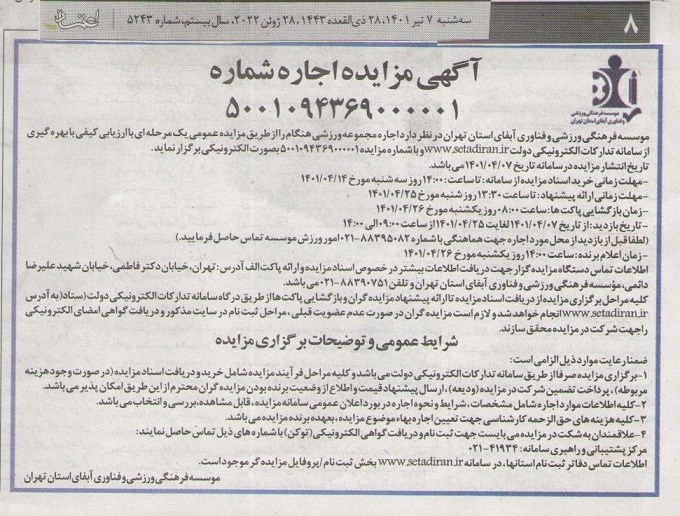 ۸
سه‌شنبه ۷ تیر ۱۴۰۱، ۲۸ ذی‌القعده ۱۴۴۳، ۲۸ ژوئن ۲۰۲۲، سال بیستم، شماره ۵۲۴۳
اعتماد
موسسه فرهنگی ورزشی
و فناوری آبفای استان تهران
آگهی مزایده اجاره شماره
۵۰۰۱۰۹۴۳۶۹۰۰۰۰۰۱
موسسه فرهنگی ورزشی و فناوری آبفای استان تهران در نظر دارد اجاره مجموعه ورزشی هنگام را از طریق مزایده عمومی یک مرحله‌ای با ارزیابی کیفی با بهره گیری
از سامانه تدارکات الکترونیکی دولت www.setadiran.ir و با شماره مزایده ۵۰۰۱۰۹۴۳۶۹۰۰۰۰۰۱ بصورت الکترونیکی برگزار نماید.
تاریخ انتشار مزایده در سامانه تاریخ ۱۴۰۱/۰۴/۰۷ می‌باشد.
-مهلت زمانی خرید اسناد مزایده از سامانه: تا ساعت: ۱۴:۰۰ روز سه شنبه مورخ ۱۴۰۱/۰۴/۱۴
-مهلت زمانی ارائه پیشنهاد: تا ساعت ۱۳:۳۰ روز شنبه مورخ ۱۴۰۱/۰۴/۲۵
-زمان بازگشایی پاکت‌ها: ساعت ۰۸:۰۰ روز یکشنبه مورخ ۱۴۰۱/۰۴/۲۶
-تاریخ بازدید: از تاریخ ۱۴۰۱/۰۴/۰۷ لغایت ۱۴۰۱/۰۴/۲۵ از ساعت ۰۹:۰۰ الی ۱۴:۰۰
(لطفا قبل از بازدید از محل مورد اجاره جهت هماهنگی با شماره ۸۸۳۹۵۰۸۲-۰۲۱ امور ورزش موسسه تماس حاصل فرمایید.)
-زمان اعلام برنده: ساعت ۱۴:۰۰ روز یکشنبه مورخ ۱۴۰۱/۰۴/۲۶
اطلاعات تماس دستگاه مزایده گزار جهت دریافت اطلاعات بیشتر در خصوص اسناد مزایده و ارائه پاکت الف آدرس: تهران، خیابان دکتر فاطمی، خیابان شهید علیرضا
دائمی، مؤسسه فرهنگی ورزشی و فناوری آبفای استان تهران و تلفن ۸۸۳۹۰۷۵۱-۰۲۱ می‌باشد.
کلیه مراحل برگزاری مزایده از دریافت اسناد مزایده تا ارائه پیشنهاد مزایده گران و بازگشایی پاکت ها از طریق درگاه سامانه تدارکات الکترونیکی دولت (ستاد) به آدرس
www.setadiran.ir انجام خواهد شد و لازم است مزایده گران در صورت عدم عضویت قبلی، مراحل ثبت نام در سایت مذکور و دریافت گواهی امضای الکترونیکی
را جهت شرکت در مزایده محقق سازند.
شرایط عمومی و توضیحات برگزاری مزایده
ضمنا رعایت موارد ذیل الزامی است:
۱-برگزاری مزایده صرفا از طریق سامانه تدارکات الکترونیکی دولت می باشد و کلیه مراحل فرآیند مزایده شامل خرید و دریافت اسناد مزایده (در صورت وجود هزینه
مربوطه)، پرداخت تضمین شرکت در مزایده (ودیعه)، ارسال پیشنهاد قیمت و اطلاع از وضعیت برنده بودن مزایده گران محترم از این طریق امکان پذیر می باشد.
۲-کلیه اطلاعات موارد اجاره شامل مشخصات، شرایط و نحوه اجاره در بورد اعلان عمومی سامانه مزایده، قابل مشاهده، بررسی و انتخاب می باشد.
۳-کلیه هزینه های حق الزحمه کارشناسی جهت تعیین اجاره بهاء موضوع مزایده، بعهده برنده مزایده می‌باشد.
۴-علاقمندان به شکت در مزایده می بایست جهت ثبت نام و دریافت گواهی الکترونیکی (توکن) با شماره های ذیل تماس حاصل نمایند:
مرکز پشتیبانی و راهبری سامانه: ۴۱۹۳۴-۰۲۱
اطلاعات تماس دفاتر ثبت نام استانها، در سامانه www.setadiran.ir بخش ثبت نام/پروفایل مزایده گر موجود است.
موسسه فرهنگی ورزشی و فناوری آبفای استان تهران